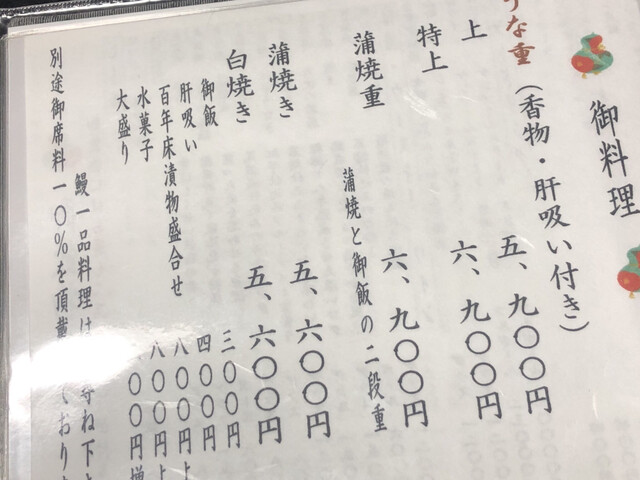 御料理
うな重（香物・肝吸い付き）
上 五、九〇〇円
特上 六、九〇〇円
蒲焼重 六、九〇〇円
蒲焼と御飯の二段重
蒲焼き 五、六〇〇円
白焼き 五、六〇〇円
御飯 三〇〇円
肝吸い 四〇〇円
百年床漬物盛合せ 八〇〇円上
水菓子 八〇〇円上
大盛り 〇〇円増
鰻一品料理は 尋ね下さ
別途御席料一〇％を頂戴 ております